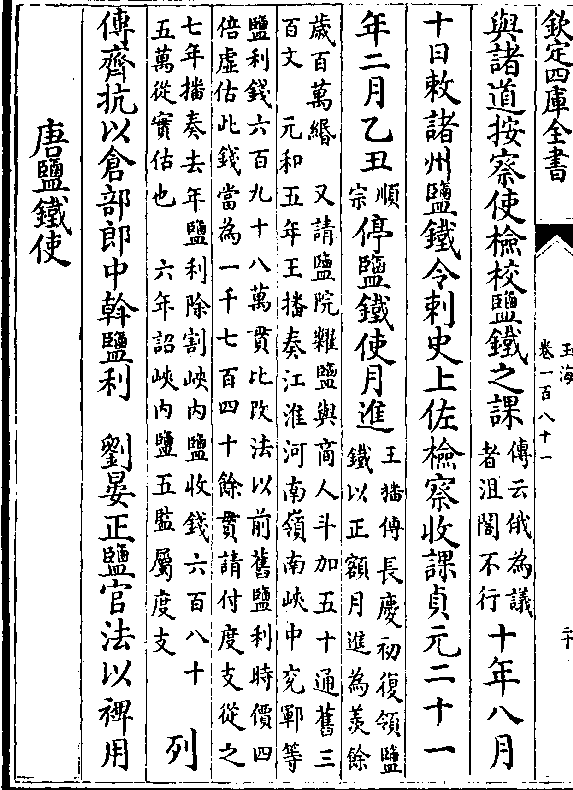 欽定四庫全書
玉海
卷一百八十一
二十
與諸道按察使檢校鹽鐵之課
傳云俄為議
者沮閣不行
十年八月
十日敕諸州鹽鐵令刺史上佐檢察收課貞元二十一
年二月乙丑
順
宗
停鹽鐵使月進
王播傳長慶初復領鹽
鐵以正額月進為羨餘
歲百萬緡 又請鹽院糶鹽與商人斗加五十通舊三
百文 元和五年王播奏江淮河南嶺南峽中兖鄆等
鹽利錢六百九十八萬貫比改法以前舊鹽利時價四
倍虛估此錢當為一千七百四十餘貫請付度支從之
七年播奏去年鹽利除割峽内鹽收錢六百八十
五萬從實估也 六年詔峽内鹽五監屬度支
列
傳齊抗以倉部郎中幹鹽利 劉晏正鹽官法以裨用
唐鹽鐵使